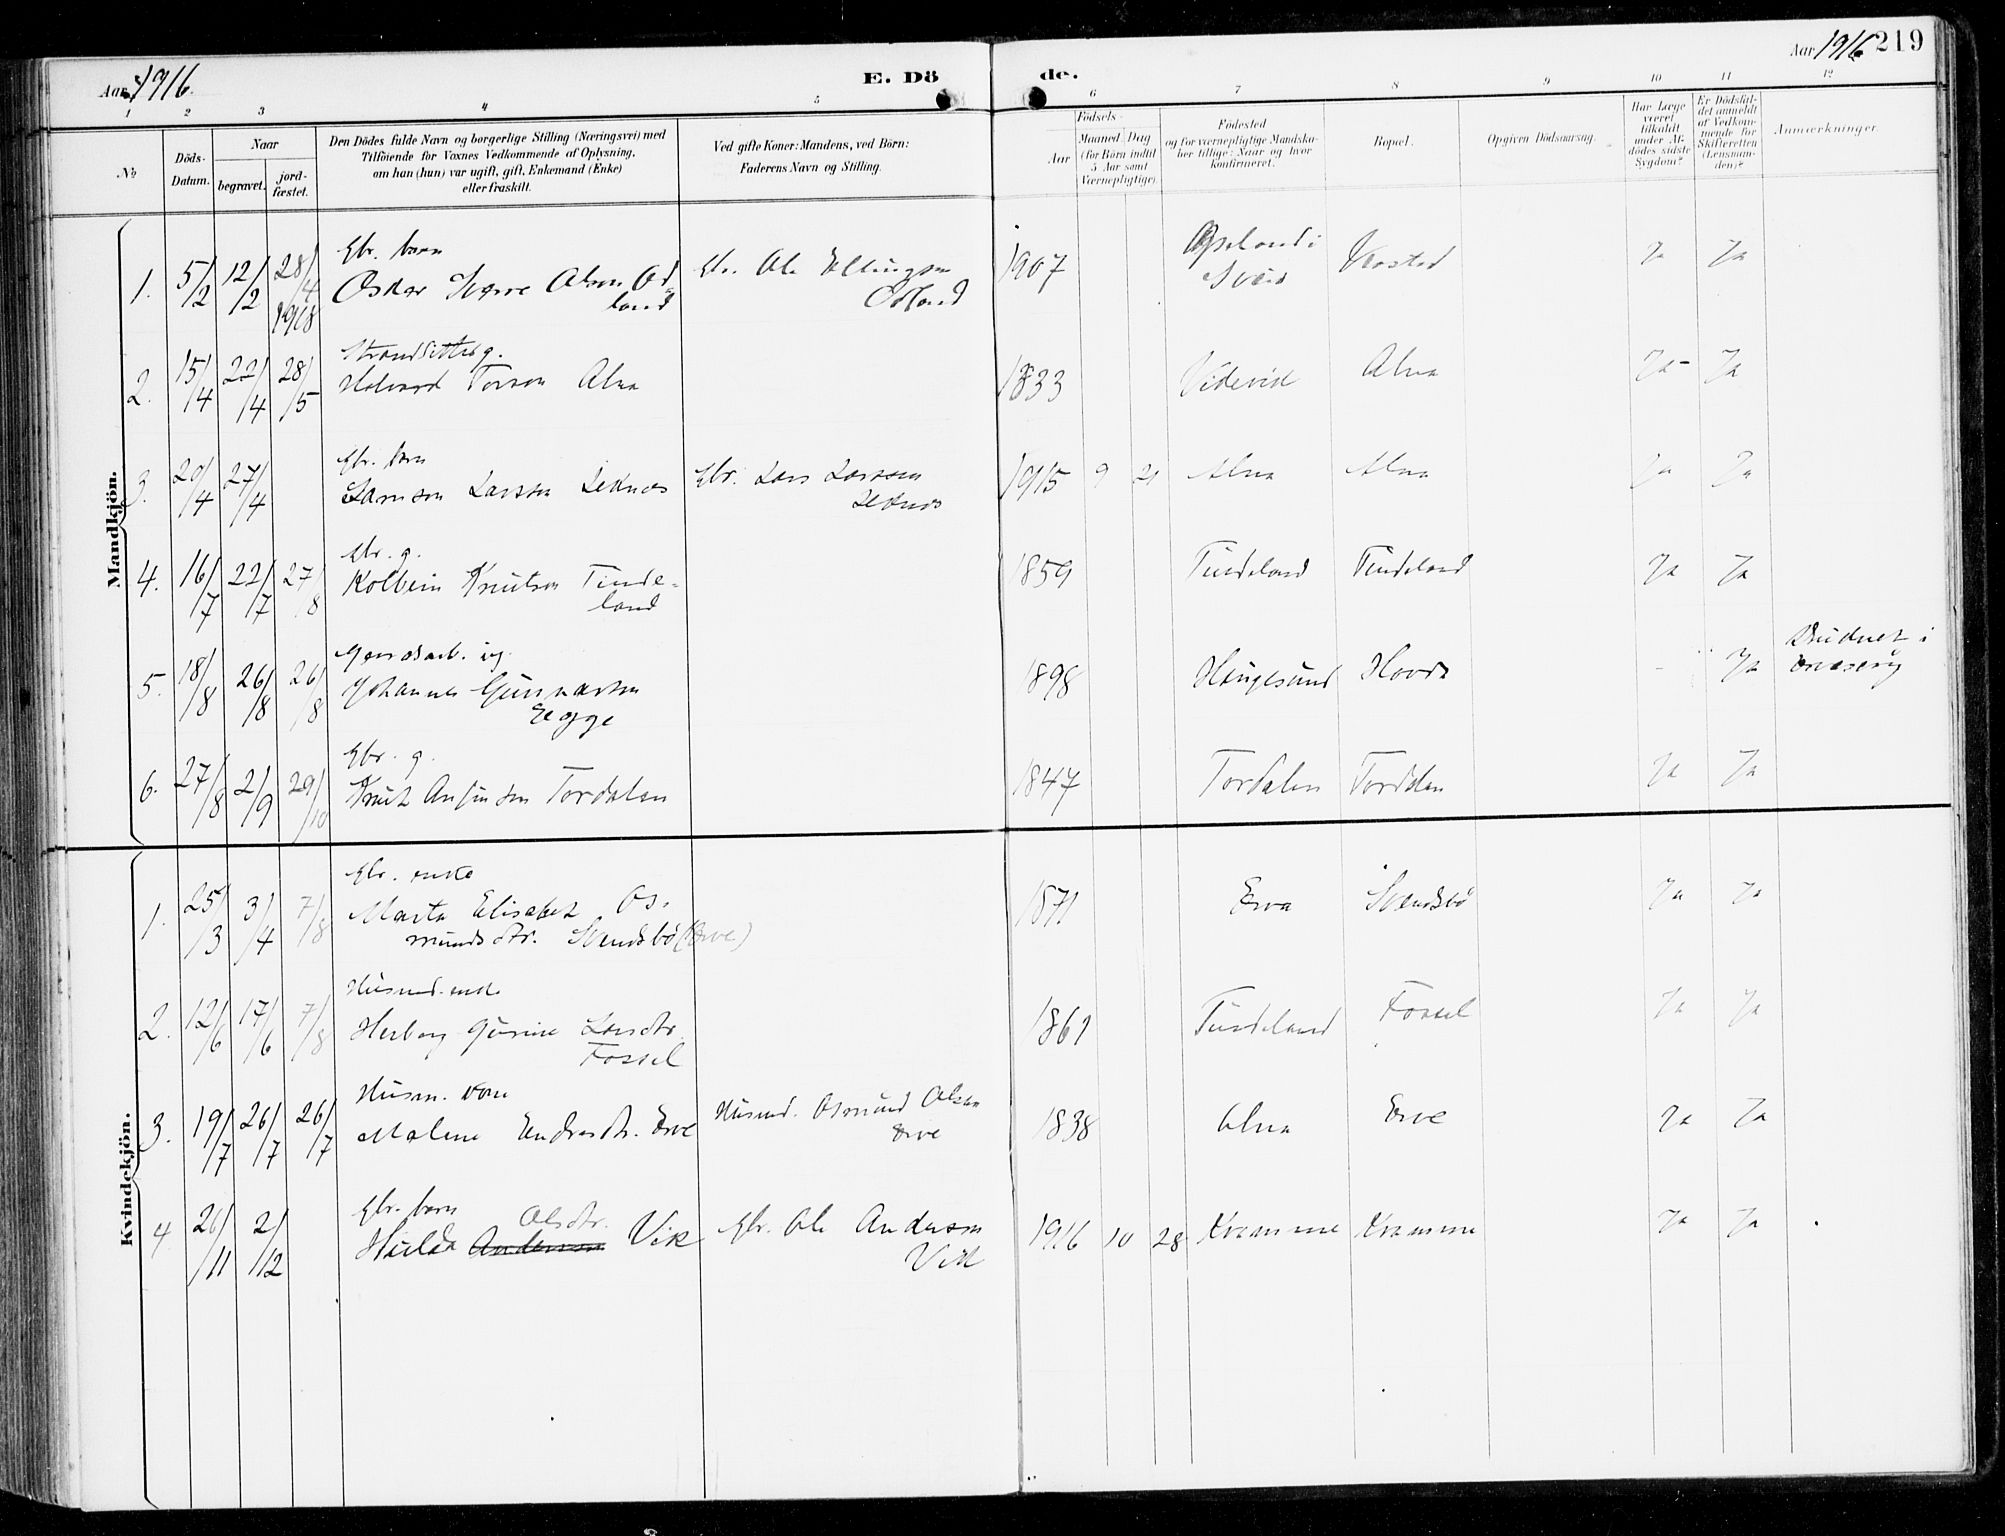 Aar 1916.
E. Dö
de.
Aar 1916 219
1 2 3 4 5 6 7 8 9 10 11 12
No
Döds-
Datum.
Naar
begravet.
jord-
fæstet.
Den Dödes fulde Navn og borgerlige Stilling (Næringsvei) med
Tilföiende for Voxnes Vedkommende af Oplysning,
om han (hun) var ugift, gift, Enkemand (Enke)
eller fraskilt.
Ved gifte Koner: Mandens, ved Börn:
Faderens Navn og Stilling.
Födsels-
Aar
Maaned Dag
(for Börn indtil
5 Aar samt
Værnepligtige).
Födested
og for værnepligtige Mandska-
ber tillige: Naar og hvor
konfirmeret.
Bopæl.
Opgiven Dödsaarsag.
Har Læge
været
tilkaldt
under Af-
dödes sidste
Sygdom?
Er Dödsfal-
det anmeldt
af Vedkom-
mende for
Skifteretten
(Lensman-
den)?
Anmærkninger.
Mandkjön.
Gbr. barn
1. 5/2 12/2 28/4 1918 Oskar Sverre Olsen Od-
land
Gbr. Ole Ellingsen
Odland
1907
Ja Ja
Strandsitter g.
2. 15/4 22/4 28/5 Halvard Torson Alna 1833 Videvik Alna Ja Ja
Gbr. barn
3. 20/4 27/4 Samson Larsson Leknes Gbr. Lars Larsson
Leknes
1915 9 21 Alna Alna Ja Ja
Gbr. g.
4. 16/7 22/7 27/8 Kolbein Knutson Tinde-
land
1859 Tindeland Tindeland Ja Ja
5. 18/8 26/8 26/8 Johannes Gunnarson
Egge
1898 Haugesund Hovda - Ja
Gbr. g.
6. 27/8 2/9 29/10 Knut Anfinson Tordalen 1847 Tordalen Tordalen Ja Ja
Kvindekjön.
Gbr. enke
1. 25/3 3/4 7/8 Marta Elisabet Os-
mundsdtr. Svendsbö (Erve)
1871 Erve Svendsbö Ja Ja
Husmd. enke
2. 12/6 17/6 7/8 Herborg Gurine Larsdtr.
Fossel
1861 Tindeland Fossel Ja Ja
Husm. kone
3. 19/7 26/7 26/7 Malene Endresdtr. Erve Husmd. Osmund Olsen
Erve
1838 Alna Erve Ja Ja
Gbr. barn
Olsdtr.
4 26/11 2/12 Hulda Anderson Vik Gbr. Ole Anderson
Vik
1916 10 28 Kramme Kramme Ja Ja